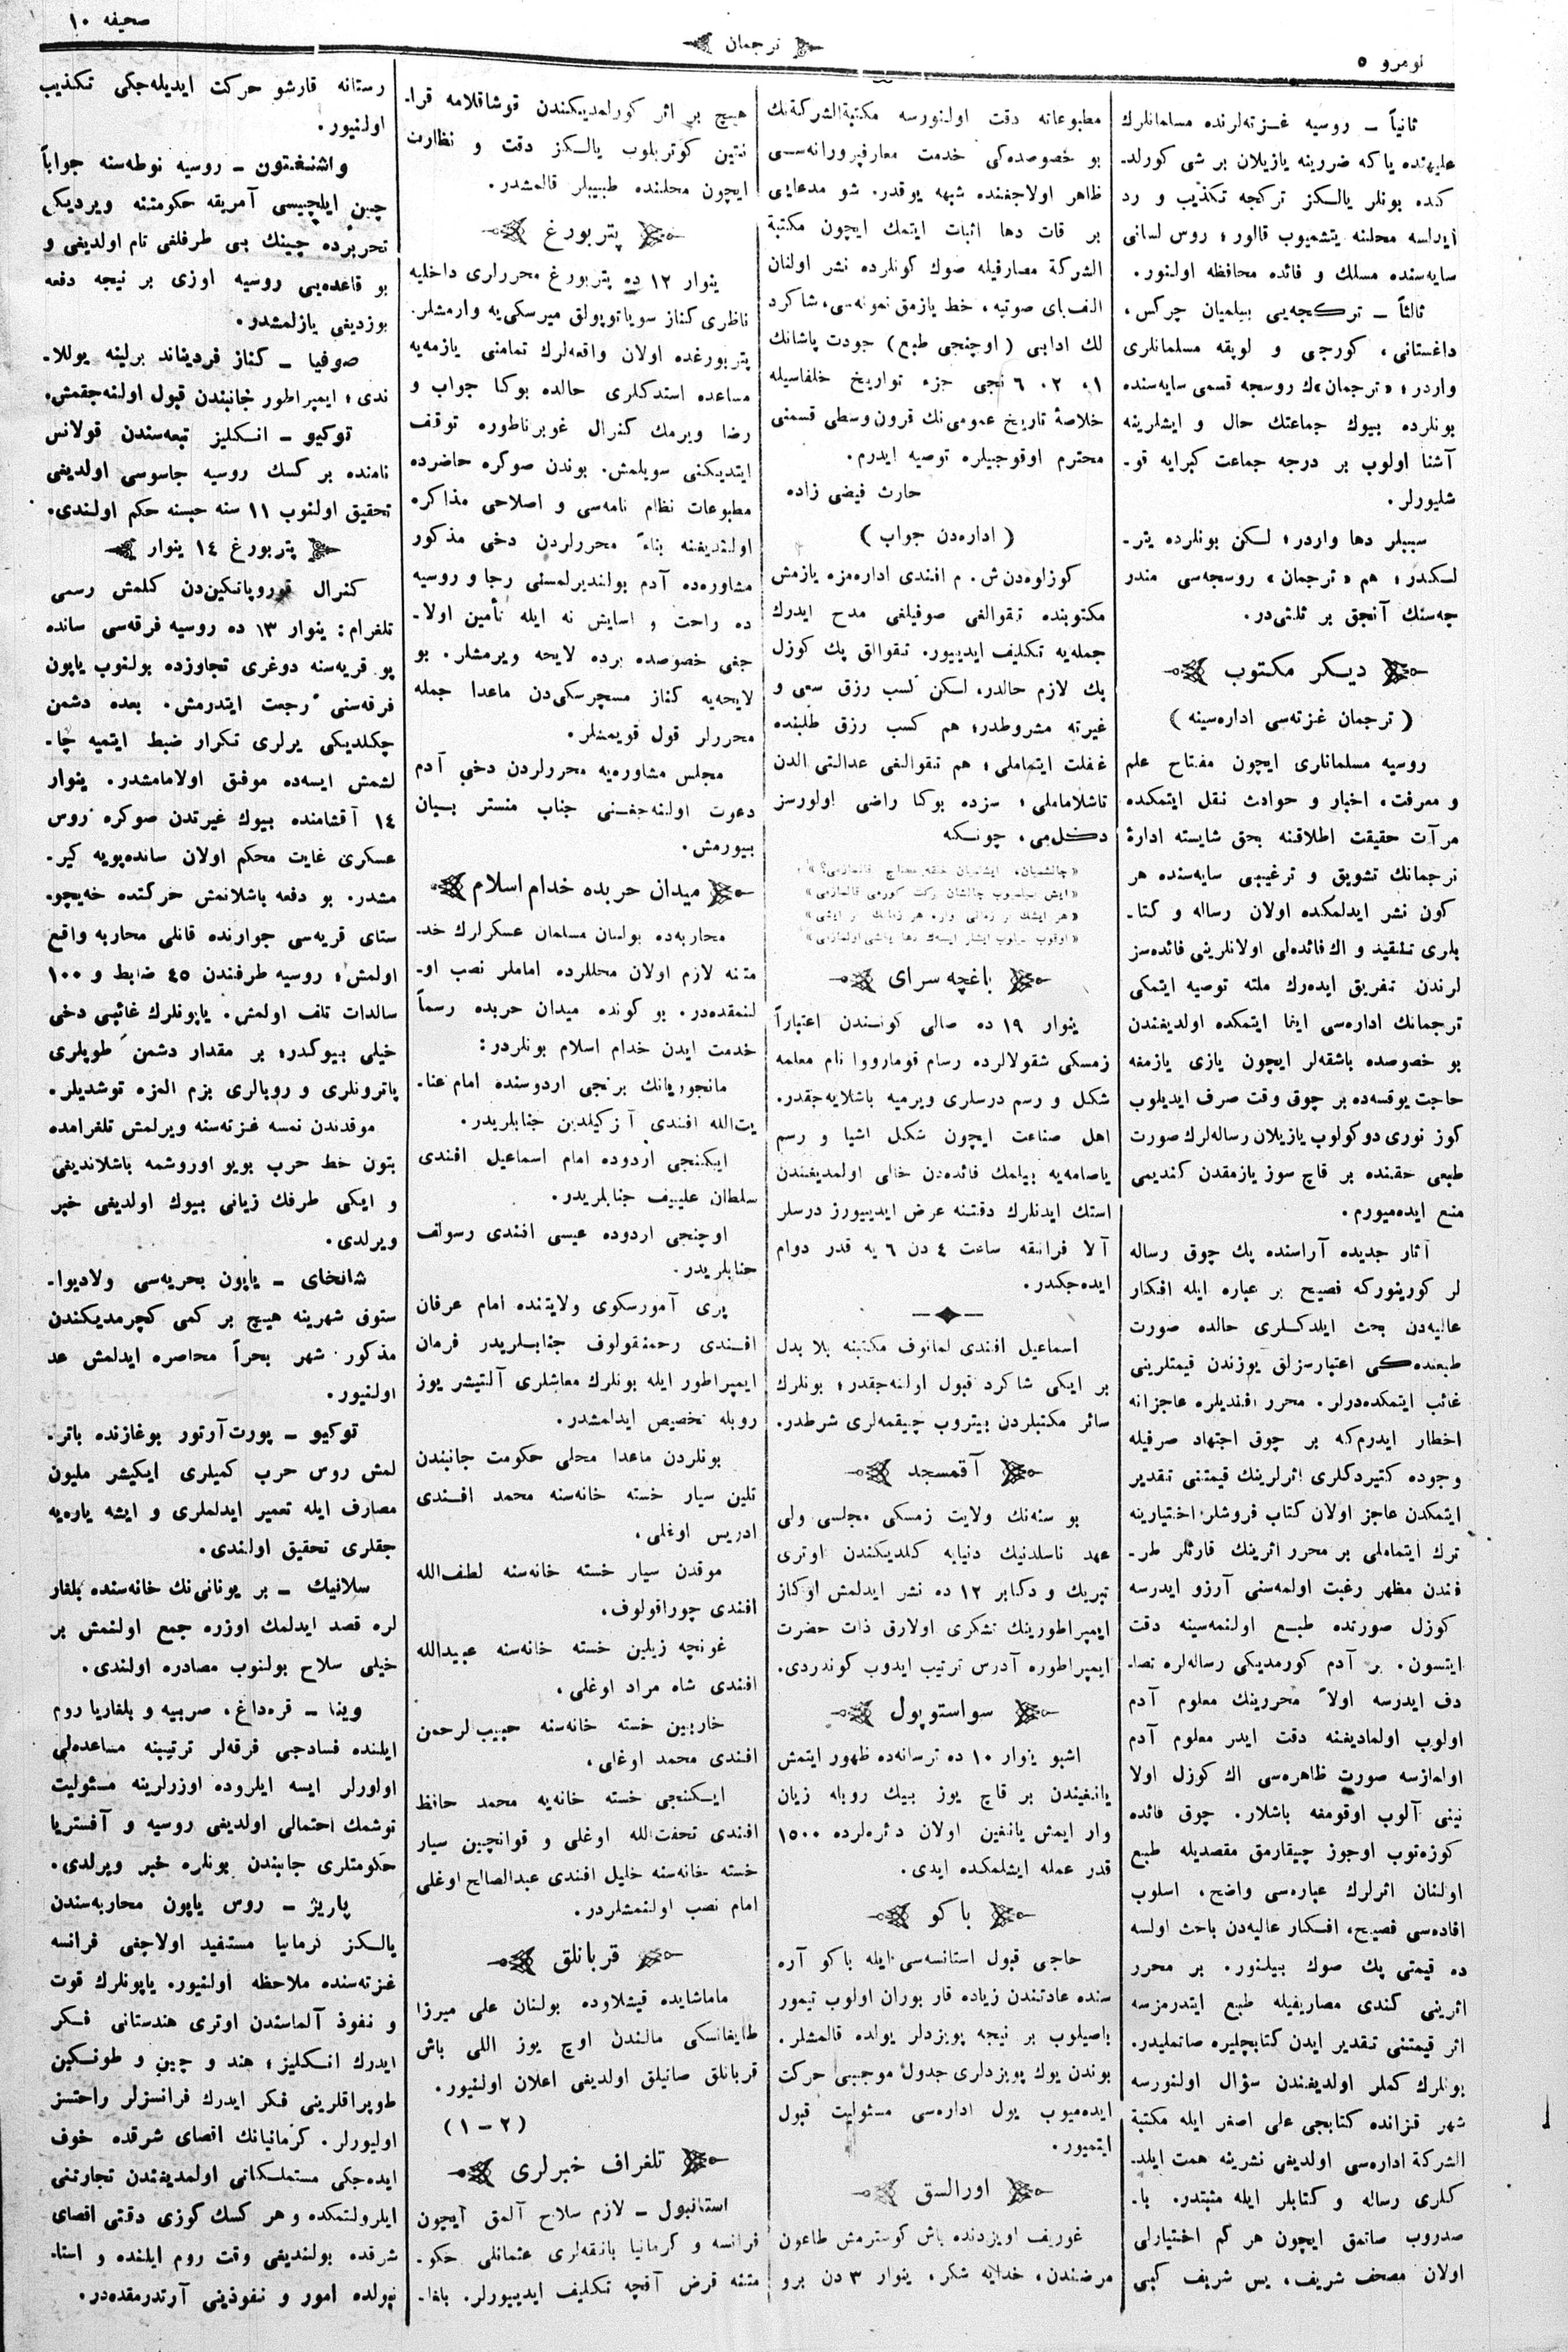 نومرو ٥
ترجمان
صحيفه ١٠
ثانياً ــ روسيه غـزته‌لرنده مسلمانلرك
عليهنده ياكه ضررينه يازيلان بر شی كورلد-
كده بونلر يالـكز تركجه تكذيب و رد
ايدلسه محلنه يتشميوب قالور؛ روس لسانی
سايه‌سنده مسلك و فائده محافظه اولنور.
ثالثاً ــ تركجه‌یی بيلميان چركس،
داغستانی، كورجی و لوپقه مسلمانلری
واردر؛ «ترجمان»ك روسجه قسمی سايه‌سنده
بونلرده بيوك جماعتك حال و ايشلرينه
آشنا اولوب بر درجه جماعت كبرايه قو-
شليورلر.
سببلر دها واردر؛ لـكن بونلرده يتر-
لـكدر؛ هم «ترجمان» روسجه‌سی مندر
جه‌سنك آنجق بر ثلثی‌در.
ديـكر مكتوب
( ترجمان غزته‌سی اداره‌سينه )
روسيه مسلمانلری ايچون مفتاح علم
و معرفت، اخبار و حوادث نقل ايتمكده
مرآت حقيقت اطلاقنه بحق شايسته ادارهٔ
ترجمانك تشويق و ترغيبی سايه‌سنده هر
كون نشر ايدلمكده اولان رساله و كتا-
بلری تنقيد و اك فائده‌لی اولانلرينی فائده‌سز
لرندن تفريق ايده‌رك ملته توصيه ايتمكی
ترجمانك اداره‌سی ايفا ايتمكده اولديغندن
بو خصوصده باشقه‌لر ايچون يازی يازمغه
حاجت يوقسه‌ده بر چوق وقت صرف ايديلوب
كوز نوری دوكولوب يازيلان رساله‌لرك صورت
طبعی حقنده بر قاچ سوز يازمقدن كنديمی
منع ايده‌ميورم.
آثار جديده آراسنده پك چوق رساله
لر كورينوركه فصيح بر عباره ايله افكار
عاليه‌دن بحث ايلدكلری حالده صورت
طبعنده‌كی اعتبارسزلق يوزندن قيمتلرينی
غائب ايتمكده‌درلر. محرر افنديلره عاجزانه
اخطار ايدرم‌كه بر چوق اجتهاد صرفيله
وجوده كتيردكلری اثرلرينك قيمتنی تقدير
ايتمكدن عاجز اولان كتاب فروشلر اختيارينه
ترك ايتماملی بر محرر اثرينك قارئلر طر-
فندن مظهر رغبت اولمه‌سنی آرزو ايدرسه
كوزل صورتده طبع اولنمه‌سينه دقت
ايتسون. بر آدم كورمديكی رساله‌لره تصا-
دف ايدرسه اولاً محررينك معلوم آدم
اولوب اولماديغنه دقت ايدر معلوم آدم
اولمازسه صورت ظاهره‌سی اك كوزل اولا
نينی آلوب اوقومغه باشلار. چوق فائده
كوزه‌توب اوجوز چيقارمق مقصديله طبع
اولنان اثرلرك عباره‌سی واضح، اسلوب
افاده‌سی فصيح، افـكار عاليه‌دن باحث اولسه
ده قيمتی پك صوك بيلنور. بر محرر
اثرينی كندی مصاريفيله طبع ايتدرمزسه
اثر قيمتنی تقدير ايدن كتابچيلره صاتمليدر.
بونلرك كملر اولديغندن سؤال اولنورسه
شهر قزانده كتابجی علی اصغر ايله مكتبة
الشركة اداره‌سی اولديغی نشرينه همت ايلد-
كلری رساله و كتابلر ايله مثبتدر. با-
صدروب صاتمق ايچون هر كم اختيارلی
اولان مصحف شريف، يس شريف كبی
مطبوعاته دقت اولنورسه مكتبةالشركة‌نك
بو خصوصده‌كی خدمت معارفپرورانه‌سی
ظاهر اولاجغنده شبهه يوقدر. شو مدعايی
بر قات دها اثبات ايتمك ايچون مكتبة
الشركة مصارفيله صوك كونلرده نشر اولنان
الف‌بای صوتيه، خط يازمق نمونه‌سی، شاكرد
لك ادابی (اوچنجی طبع) جودت پاشانك
٠١ ٠٢ ٦نجی جزء تواريخ خلفاسيله
خلاصهٔ تاريخ عمومی‌نك قرون وسطی قسمنی
محترم اوقوجيلره توصيه ايدرم.
حارث فيضی زاده
( اداره‌دن جواب )
كوزلوه‌دن ش. م افندی اداره‌مزه يازمش
مكتوبنده تقوالغی صوفيلغی مدح ايدرك
جمله‌يه تكليف ايدييور. تقوالق پك كوزل
پك لازم حالدر، لـكن كسب رزق سعی و
غيرته مشروطدر؛ هم كسب رزق طلبنده
غفلت ايتماملی؛ هم تقوالغی عدالتی الدن
تاشلاماملی؛ سزده بوكا راضی اولورسز
دكل‌می. چونـكه
باغچه سرای
ينوار ١٩ ده صالی كونـندن اعتباراً
زمسكی شقولالرده رسام قومارووا نام معلمه
شكل و رسم درسلری ويرميه باشلايه‌جقدر.
اهل صناعت ايچون شكل اشيا و رسم
ياصامه‌يه بيلمك فائده‌دن خالی اولمديغندن
استك ايدنلرك دقتنه عرض ايدييورز درسلر
آلا فرانقه ساعت ٤ دن ٦ يه قدر دوام
ايده‌جكدر.
اسماعيل افندی لمانوف مكتبنه بلا بدل
بر ايكی شاكرد قبول اولنه‌جقدر؛ بونلرك
سائر مكتبلردن بيتروب چيقمه‌لری شرطدر.
آقمسجد
بو سنه‌نك ولايت زمسكی مجلسی ولی
عهد ناسلدنيك دنيايه كلديكندن اوتری
تبريك و دكابر ١٢ ده نشر ايدلمش اوكاز
ايمپراطورينك تشكری اولارق ذات حضرت
ايمپراطوره آدرس ترتيب ايدوب كوندردی.
سواستوپول
اشبو ينوار ١٠ ده ترسانه‌ده ظهور ايتمش
يانغيندن بر قاچ يوز بيك روبله زيان
وار ايمش يانغين اولان دائره‌لرده ١٥٠٠
قدر عمله ايشلمكده ايدی.
باكو
حاجی قبول استانسه‌سی ايله باكو آره
سنده عادتندن زياده قار بوران اولوب تيمور
باصيلوب بر نيجه پويزدلر يولده قالمشلر.
بوندن يوك پويزدلری جدول موجبی حركت
ايده‌ميوب يول اداره‌سی مسئوليت قبول
ايتميور.
اورالسق
غوريف اويزدنده باش كوسترمش طاعون
مرضندن، خدايه شكر، ينوار ٣ دن برو
هيچ بر اثر كورلمديكندن قوشاقلامه قرا-
نتين كوتريلوب يالـكز دقت و نظارت
ايچون محلنده طبيبلر قالمشدر.
پتربورغ
ينوار ١٢ ده پتربورغ محررلری داخليه
ناظری كناز سوياتوپولق ميرسكی‌يه وارمشلر.
پتربورغده اولان واقعه‌لرك تمامنی يازمه‌يه
مساعده استدكلری حالده بوكا جواب و
رضا ويرمك كنرال غوبرناطوره توقف
ايتديكنی سويلمش. بوندن صوكره حاضرده
مطبوعات نظام نامه‌سی و اصلاحی مذاكره
اولنديغنه بناءً محررلردن دخی مذكور
مشاوره‌ده آدم بولنديرلمسنی رجا و روسيه
ده راحت و اسايش نه ايله تأمين اولا-
جغی خصوصده برده لايحه ويرمشلر. بو
لايحه‌يه كناز مسچرسكی‌دن ماعدا جمله
محررلر قول قويمشلر.
مجلس مشاوره‌يه محررلردن دخی آدم
دعوت اولنه‌جغنی جناب منستر بيان
بيورمش.
ميدان حربده خدام اسلام
محاربه‌ده بولنان مسلمان عسكرلرك خد-
متنه لازم اولان محللرده اماملر نصب او-
لنمقده‌در. بو كونده ميدان حربده رسماً
خدمت ايدن خدام اسلام بونلردر:
مانجوريانك برنجی اردوسنده امام عنا-
يت‌الله افندی آزكيلدين جنابلريدر.
ايكنجی اردوده امام اسماعيل افندی
سلطان علييف جنابلريدر.
اوچنجی اردوده عيسی افندی رسولف
جنابلريدر.
پری آمورسكوی ولايتنده امام عرفان
افندی رحمتقولوف جنابلريدر فرمان
ايمپراطور ايله بونلرك معاشلری آلتيشر يوز
روبله تخصيص ايدلمشدر.
بونلردن ماعدا محلی حكومت جانبندن
تلين سيار خسته خانه‌سنه محمد افندی
ادريس اوغلی.
موقدن سيار خسته خانه‌سنه لطف‌الله
افندی چوراقولوف.
غونچه زيلين خسته خانه‌سنه عبيدالله
افندی شاه مراد اوغلی.
خاربين خسته خانه‌سنه حبيب‌الرحمن
افندی محمد اوغلی.
ايـكنجی خسته خانه‌يه محمد حافظ
افندی تحفت‌الله اوغلی و قوانچين سيار
خسته خانه‌سنه خليل افندی عبدالصالح اوغلی
امام نصب اولنمشلردر.
قربانلق
ماماشايده قيشلاوده بولنان علی ميرزا
طايفانسكی مالندن اوچ يوز اللی باش
قربانلق صاتيلق اولديغی اعلان اولنيور.
(٢ــ١)
تلغراف خبرلری
استانبول ــ لازم سلاح آلمق ايچون
فرانسه و كرمانيا بانقه‌لری عثمانلی حكو-
متنه قرض آقچه تكليف ايدييورلر. بالقا-
رستانه قارشو حركت ايديله‌جكی تكذيب
اولنيور.
واشنغتون ــ روسيه نوطه‌سنه جواباً
چين ايلچيسی آمريقه حكومتنه ويرديكی
تحريرده چينك بی طرفلغی تام اولديغی و
بو قاعده‌یی روسيه اوزی بر نيجه دفعه
بوزديغی يازلمشدر.
صوفيا ــ كناز فرديناند برلينه يوللا-
ندی؛ ايمپراطور جانبندن قبول اولنه‌جقمش.
توكيو ــ انـكليز تبعه‌سندن قولانس
نامنده بر كسك روسيه جاسوسی اولديغی
تحقيق اولنوب ١١ سنه حبسنه حكم اولندی.
پتربورغ ١٤ ينوار
كنرال قوروپاتكين‌دن كلمش رسمی
تلغرام: ينوار ١٣ ده روسيه فرقه‌سی سانده
پو قريه‌سنه دوغری تجاوزده بولنوب ياپون
فرقه‌سنی رجعت ايتدرمش. بعده دشمن
چكلديكی يرلری تكرار ضبط ايتميه چا-
لشمش ايسه‌ده موفق اولامامشدر. ينوار
١٤ آقشامنده بيوك غيرتدن صوكره روس
عسكری غايت محكم اولان سانده‌پويه كير-
مشدر. بو دفعه باشلانمش حركتده خه‌يچو-
ستای قريه‌سی جوارنده قانلی محاربه واقع
اولمش؛ روسيه طرفندن ٤٥ ضابط و ١٠٠
سالدات تلف اولمش. ياپونلرك غائبی دخی
خيلی بيوكدر؛ بر مقدار دشمن طوپلری
پاترونلری و روپالری بزم المزه توشديلر.
موقدندن نمسه غزته‌سنه ويرلمش تلغرامده
بتون خط حرب بويو اوروشمه باشلانديغی
و ايكی طرفك زيانی بيوك اولديغی خبر
ويرلدی.
شانخای ــ ياپون بحريه‌سی ولاديوا-
ستوق شهرينه هيچ بر كمی كچرمديكندن
مذكور شهر بحراً محاصره ايدلمش عد
اولنيور.
توكيو ــ پورت آرتور بوغازنده باتر-
لمش روس حرب كميلری ايكيشر مليون
مصارف ايله تعمير ايدلملری و ايشه ياره‌يه
جقلری تحقيق اولندی.
سلانيك ــ بر يونانی‌نك خانه‌سنده بلغار
لره قصد ايدلمك اوزره جمع اولنمش بر
خيلی سلاح بولنوب مصادره اولندی.
وينا ــ قره‌داغ، صربيه و بلغاريا روم
ايلنده فسادجی فرقه‌لر ترتيبنه مساعده‌لی
اولورلر ايسه ايلروده اوزرلرينه مسئوليت
توشمك احتمالی اولديغی روسيه و آفستريا
حكومتلری جانبندن بونلره خبر ويرلدی.
پاريژ ــ روس ياپون محاربه‌سندن
يالـكز گرمانيا مستفيد اولاجغی فرانسه
غزته‌سنده ملاحظه اولنيور. ياپونلرك قوت
و نفوذ آلماسندن اوتری هندستانی فـكر
ايدرك انـكليز؛ هند و چين و طونـكين
طوپراقلرينی فكر ايدرك فرانسزلر راحتسز
اوليورلر. كرمانيانك اقصای شرقده خوف
ايده‌جكی مستملـكاتی اولمديغندن تجارتنی
ايلرولتمكده و هر كسك كوزی دقتی اقصای
شرقده بولنديغی وقت روم ايلنده و استا-
نبولده امور و نفوذينی آرتدرمقده‌در.